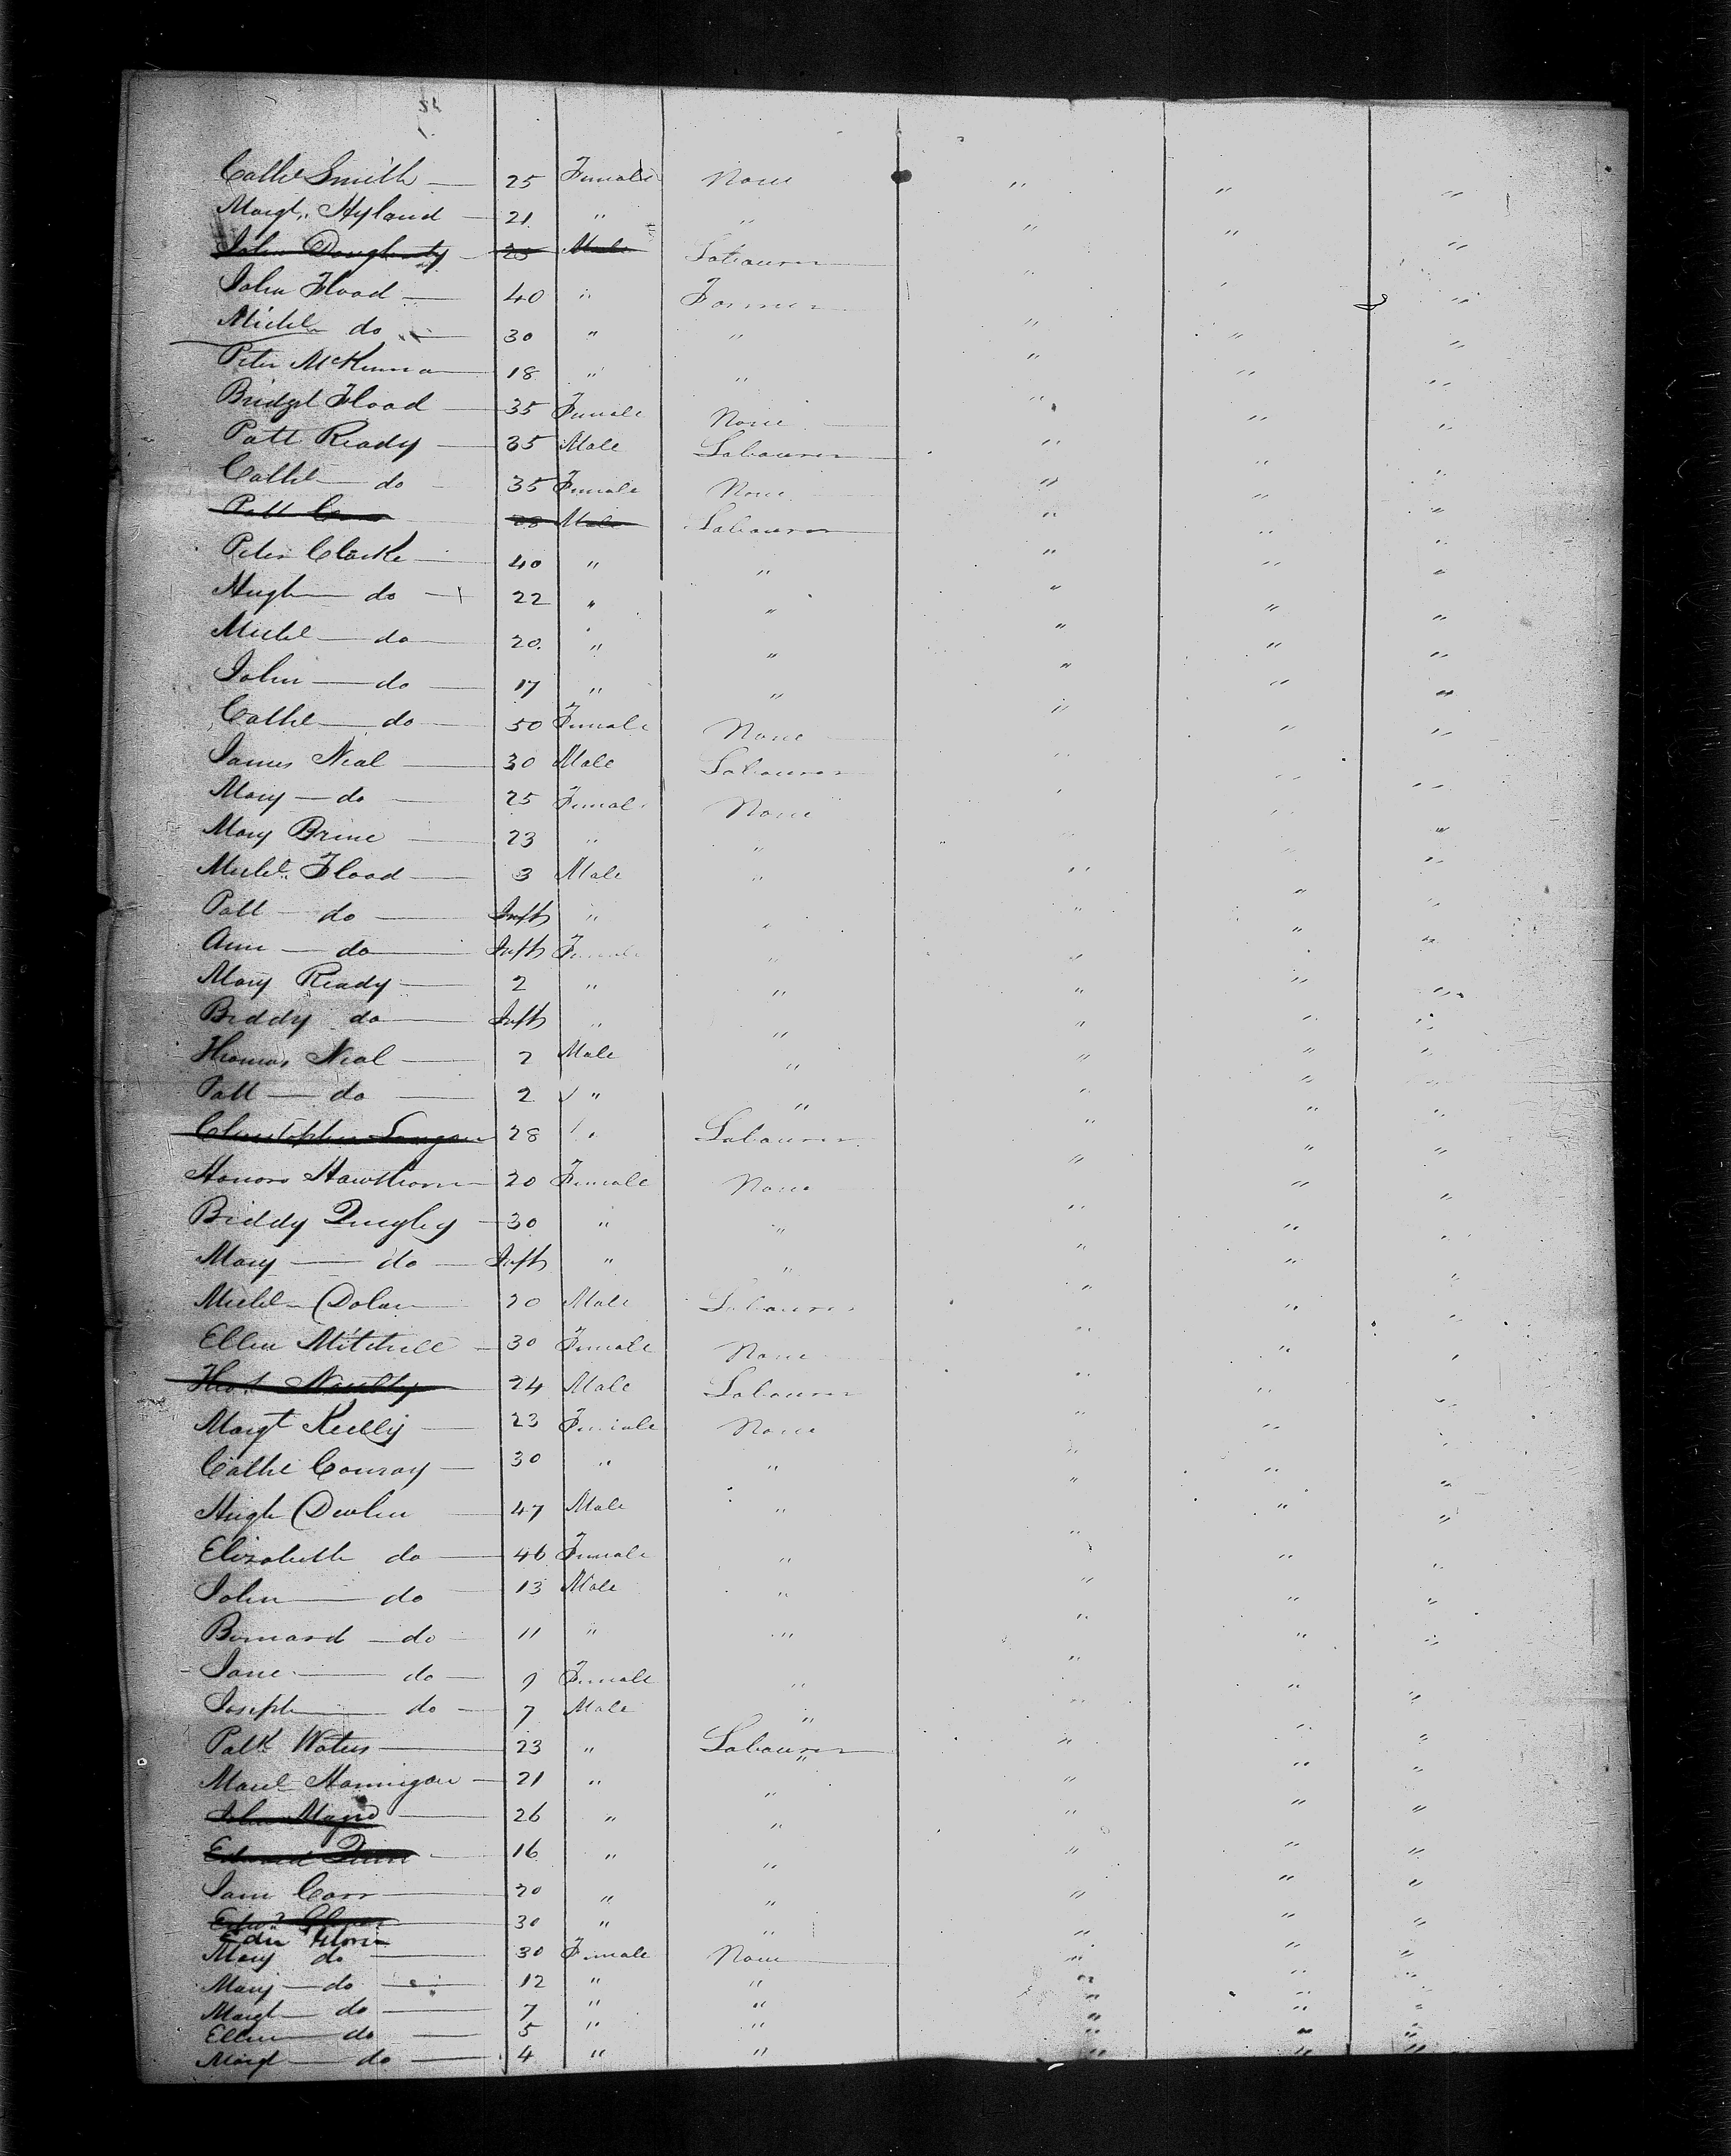 Cathe Smith — 25 Female None " " "
Margt. Hyland — 21 " " " " "
John Dougherty — 25 Male Labourer " " "
John Flood — 40 " Farmer " " "
Michl do — 30 " " " " "
Peter McKenna — 18 " " " " "
Bridget Flood — 35 Female None " " "
Patt Ready — 35 Male Labourer " " "
Cathe do 35 Female None " " "
Patt 28 Male Labourer " " "
Peter Clarke — 40 " " " " "
Hugh — do — 22 " " " " "
Michl — do — 20 " " " " "
John — do — 17 " " " " "
Cathe — do — 50 Female None " " "
James Neal — 30 Male Labourer " " "
Mary — do — 25 Female None " " "
Mary Brine — 23 " " " " "
Michl. Flood — 3 Male " " " "
Patt — do — Inft " " " " "
Ann — do — Inft Female " " " "
Mary Ready — 2 " " " " "
Biddy do — Inft " " " " "
Thomas Neal — 2 Male " " " "
Patt — do — 2 " " " " "
Christopher Langan 28 " Labourer " " "
Honora Hawthorn — 20 Female None " " "
Biddy Quigley — 30 " " " " "
Mary — do — Inft " " " " "
Michl Dolan 20 Male Labourer " " "
Ellen Mitchell — 30 Female None " " "
Thos. 24 Male Labourer " " "
Margt Keelly — 23 Female None " " "
Cathe Conray — 30 " " " " "
Hugh Devlin — 47 Male " " " "
Elizabeth do — 46 Female " " " "
John — do 13 Male " " " "
Bernard — do 11 " " " " "
Jane — do — 9 Female " " " "
Joseph — do — 7 Male " " " "
Patk Waters — 23 " Labourer " " "
Hannigan — 21 " " " " "
John — 26 " " " " "
Edward Quinn — 16 " " " " "
Carr — 20 " " " " "
Edwd 30 " " " " "
Mary do — 30 Female None " " "
Mary — do — 12 " " " " "
Margt — do — 7 " " " " "
Ellen — do — 5 " " " " "
Margt — do — 4 " " " " "